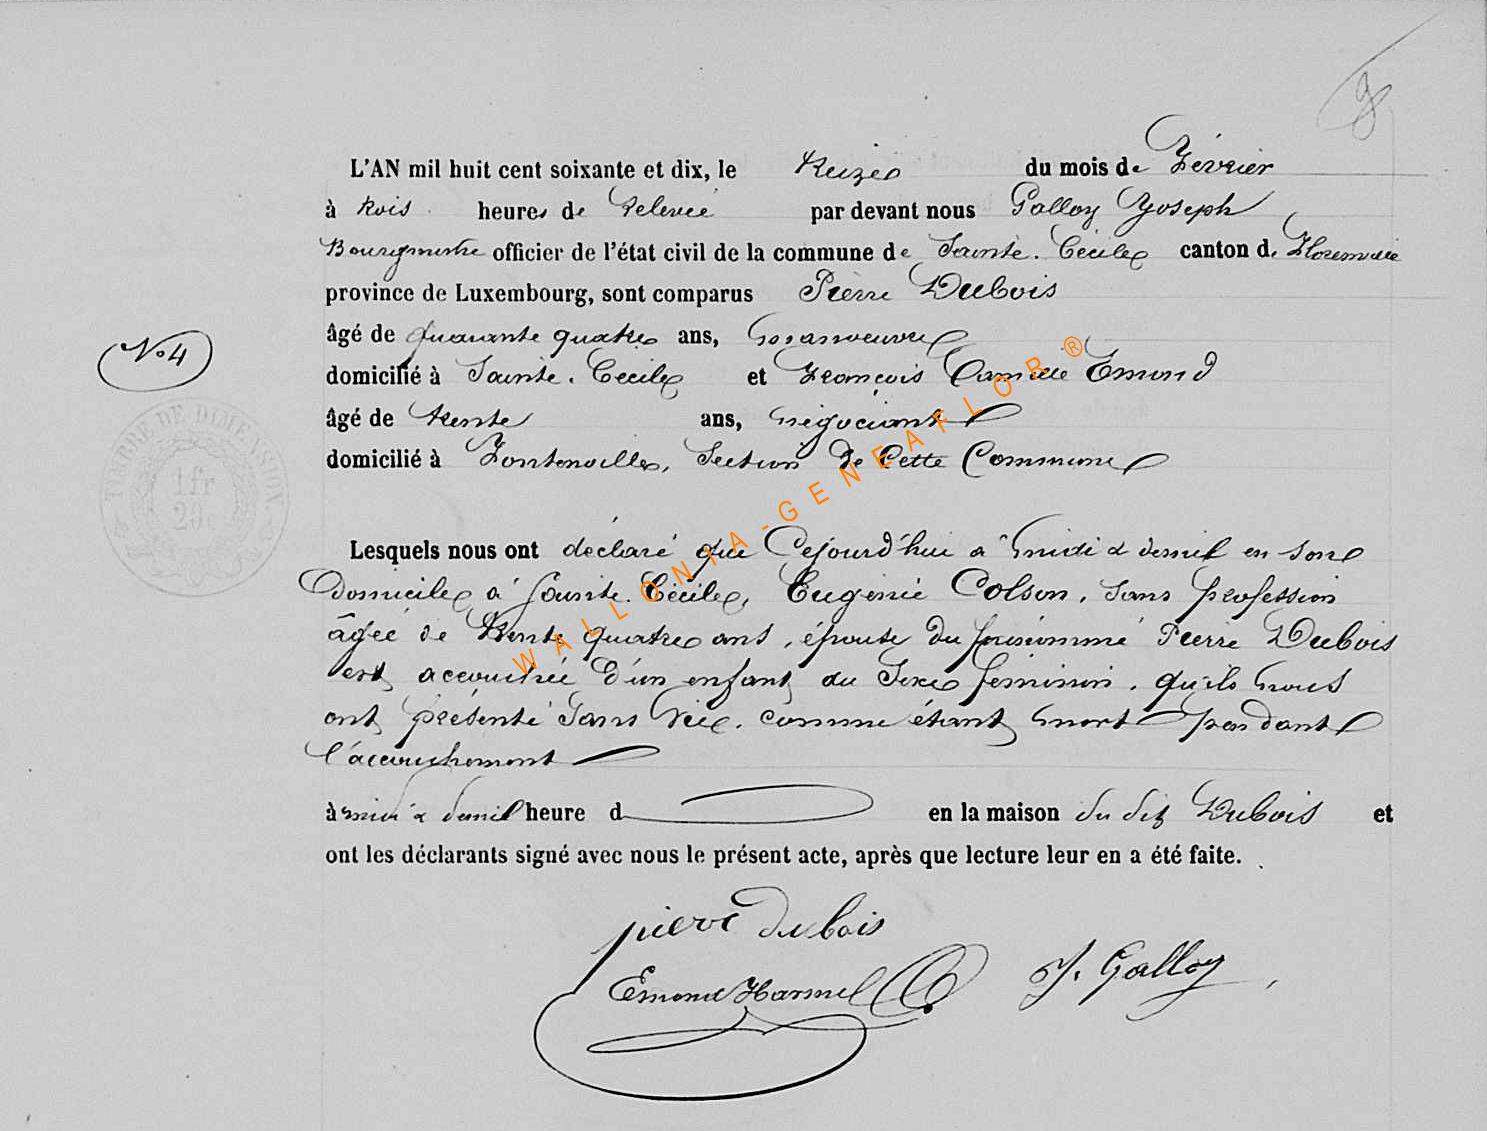 8
L'AN mil huit cent soixante et dix, le treize du mois de Février
à trois heures de Relevée par devant nous Galloy Joseph
Bourgmestre officier de l'état civil de la commune de Sainte-Cécile canton de Florenville
province de Luxembourg, sont comparus Pierre Dubois
âgé de quarante quatre ans, manoeuvre
No 4
domicilié à Sainte-Cécile et François Camille Emond
âgé de trente ans, négociant
domicilié à Fontenoille, Section de Cette Commune
TIMBRE DE DIMENSION.
1 fr
20c
Lesquels nous ont déclaré que Cejourd'hui à midi & demi en son
Domicile à Sainte-Cécile, Eugénie Colson, sans profession
âgée de trente quatre ans, épouse du susnommé Pierre Dubois
est accouchée d'un enfant du Sexe féminin, qu'ils nous
ont présenté Sans Vie, comme étant mort pendant
l'accouchement
à midi & demi heure d en la maison du dit Dubois et
ont les déclarants signé avec nous le présent acte, après que lecture leur en a été faite.
pierre dubois
Emond Harmel J. Galloy
WALLONIA-GENEAFLOR®